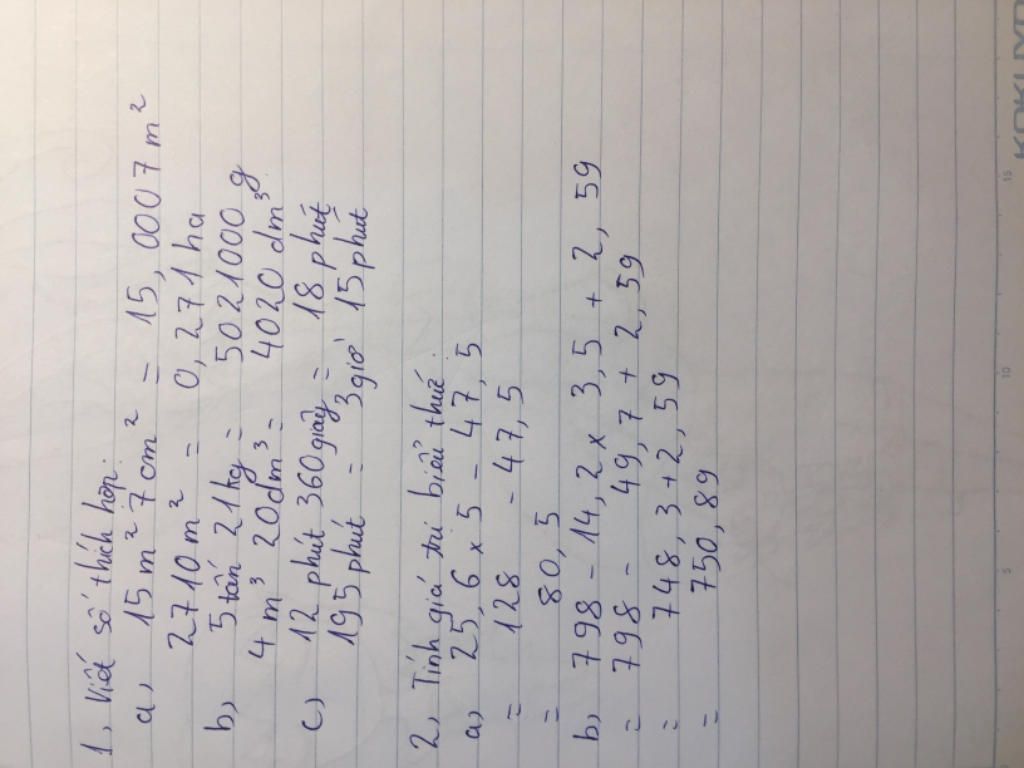 1, Viết số thích hợp:
a, 15 m² 7 cm² = 15,0007 m²
2710 m² = 0,271 ha
b, 5 tấn 21 kg = 5021000 g
4 m³ 20 dm³ = 4020 dm³
c, 12 phút 360 giây = 18 phút
195 phút = 3 giờ 15 phút
2, Tính giá trị biểu thức
a, 25,6 x 5 - 47,5
= 128 - 47,5
= 80,5
b, 798 - 14,2 x 3,5 + 2,59
= 798 - 49,7 + 2,59
= 748,3 + 2,59
= 750,89